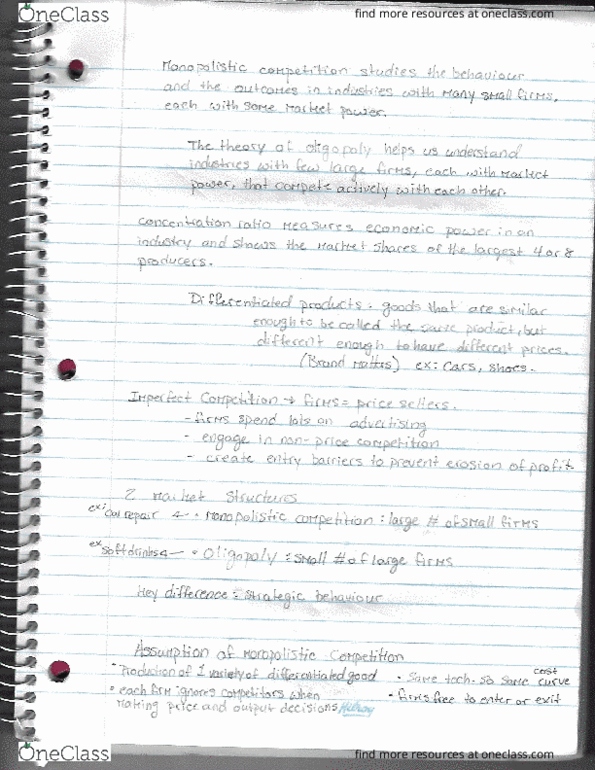 OneClass
find more resources at oneclass.com
Monopolistic competition studies the behaviour
and the outcomes in industries with many small firms,
each with some market power.
The theory of oligopoly helps us understand
industries with few large firms, each with market
power, that compete actively with each other.
concentration ratio measures economic power in an
industry and shows the market shares of the largest 4 or 8
producers.
Differentiated products: goods that are similar
enough to be called the same product, but
different enough to have different prices.
(Brand Matters) ex: cars, shoes.
Imperfect Competition → firms = price sellers.
- firms spend lots on advertising
- engage in non-price competition
- create entry barriers to prevent erosion of profit.
2 Market Structures
ex: car repair ← • Monopolistic competition: large # of small firms
ex soft drinks ← • Oligopoly: small # of large firms
Key difference: strategic behaviour
Assumption of Monopolistic Competition
• Production of 1 variety of differentiated good • Same tech. so same cost curve
• each firm ignores competitors when • firms free to enter or exit
making price and output decisions
OneClass
find more resources at oneclass.com